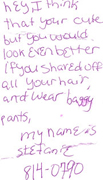 hey, I think
that your cute
but you would
look even better
if you shared off
all your hair,
and wear baggy
pants,
my name is
stefanie
814-0790